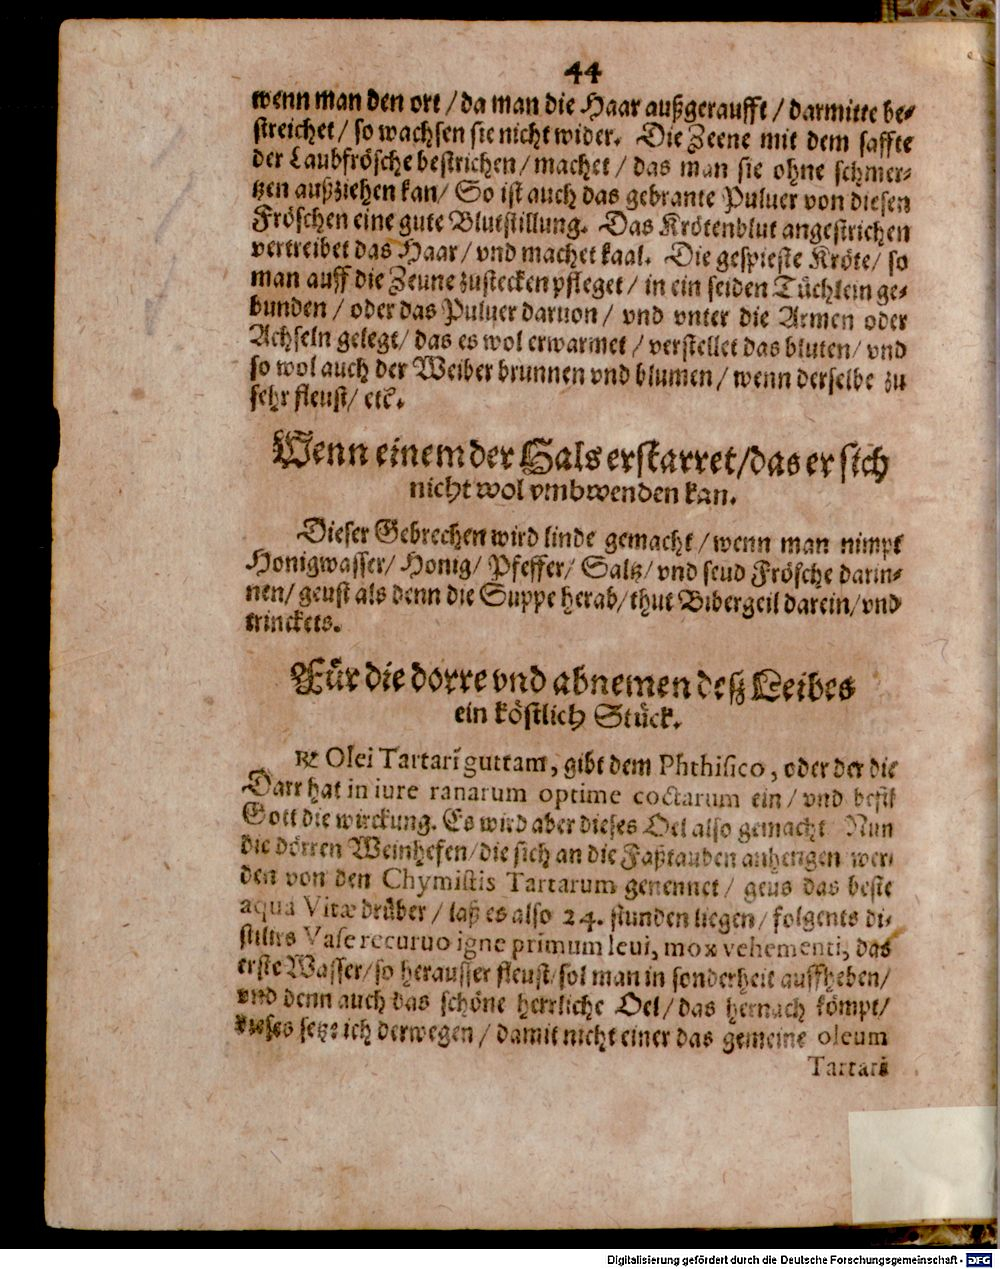 44
wenn man den ort / da man die Haar außgeraufft / darmitte be⸗
streichet / so wachsen sie nicht wider. Die Zeene mit dem saffte
der Laubfrösche bestrichen / machet / das man sie ohne schmer⸗
tzen außziehen kan / So ist auch das gebrante Puluer von diesen
Fröschen eine gute Blutstillung. Das Krötenblut angestrichen
vertreibet das Haar / vnd machet kaal. Die gespieste Kröte / so
man auff die Zeune zustecken pfleget / in ein seiden Tüchlein ge⸗
bunden / oder das Puluer daruon / vnd vnter die Armen oder
Achseln gelegt / das es wol erwarmet / verstellet das bluten / vnd
so wol auch der Weiber brunnen vnd blumen / wenn derselbe zu
sehr fleust / etc.
Wenn einem der Hals erstarret / das er sich
nicht wol vmbwenden kan.
Dieser Gebrechen wird linde gemacht / wenn man nimpt
Honigwasser / Honig / Pfeffer / Saltz / vnd seud Frösche darin⸗
nen / geust als denn die Suppe herab / thut Bibergeil darein / vnd
trinckets.
Für die dorre vnd abnemen deß Leibes
ein köstlich Stück.
℞ Olei Tartari guttam, gibt dem Phthisico, oder der die
Darr hat in iure ranarum optime coctarum ein / vnd befil
Gott die wirckung. Es wird aber dieses Oel also gemacht Nun
die dörren Weinhefen / die sich an die Faßtauben anhengen wer⸗
den von den Chymistis Tartarum genennet / geus das beste
aqua Vitæ drüber / laß es also 24. stunden liegen / folgents di⸗
stilirs Vase recuruo igne primum leui, mox vehementi, das
erste Wasser / so herausser fleust / sol man in sonderheit auffheben /
vnd denn auch das schöne herrliche Oel / das hernach kömpt /
dieses setze ich derwegen / damit nicht einer das gemeine oleum
Tartari
Digitalisierung gefördert durch die Deutsche Forschungsgemeinschaft - DFG